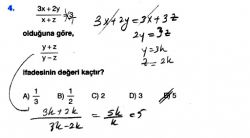 4. 3x + 2y / x + z = 3
olduğuna göre,
y + z / y − z
ifadesinin değeri kaçtır?
A) 1/3 B) 1/2 C) 2 D) 3 E) 5
3x+2y = 3x+3z
2y = 3z
y = 3k
z = 2k
3k+2k / 3k−2k = 5k / k = 5